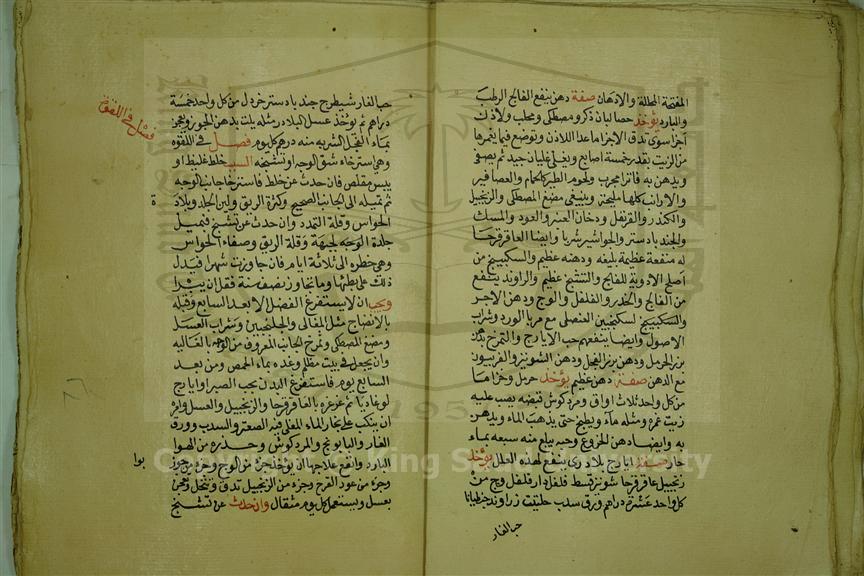 المفتحة المحللة والادهان صفة دهن ينفع الفالج الرطب
والبارد يؤخذ حصالبان ذكر ومصطكى ومحلب ولاذن
اجزا سوى يدق الاجزا ما عدا اللاذن وتوضع فيما يغمرها
من الزيت بقدر خمسة اصابع ويغلى غليان جيد ثم يصفى
ويدهن به فاترا مجرب ولحوم الطير كالحمام والعصافير
والارانب كلها مليحة وينبغى مضغ المصطكى والزنجبيل
والكندر والقرنفل ودخان العنبر والعود والمسك
والجندبادستر والجواشير شربا وايضا العاقرقرحا
له منفعة عظيمة بليغه ودهنه عظيم والسكبينج من
أصلح الادوية للفالج والتشنج عظيم والراوند ينفع
من الفالج والخدر والفلفل والوج ودهن الاجر
والسكبينج لسكنجبين العنصلى مع مربا الورد وشراب
الاصول وايضا ينفعهم حب الايارج والتمرخ بدهن
بزر الحرمل ودهن بزر الفجل ودهن الشونيز والفربيون
مع الدهن صفة دهن عظيم يؤخذ حرمل وخزاما
من كل واحد ثلاث اواق ومردكوش قبضه يصب عليه
زيت غمره ومثله ماء ويطبخ حتى يذهب الماء ويدهن
به وايضا دهن الخروع وحبه يبلع منه سبعه بماء
حار صفة ايارج بلادرى ينفع لهذه العلل يؤخذ
زنجبيل عاقرقرحا شونيز قسط فلفل دار فلفل وج من
كل واحد عشرة دراهم ورق سدب حلتيت زراوند جنطيانا
حب الغار
حب الغار شيطرج جندبادستر خردل من كل واحد خمسة
دراهم ثم يؤخذ عسل البلادر مثله يلت بدهن الجوز ويعجن
بماء الفجل الشربه منه درهم كل يوم فصل فى اللقوه
فصل فى اللقوة
وهى استرخاء شق الوجه او تشنجه السبب خلط غليظ او
يبس مقلص فان حدث عن خلط فاسترخا جانب الوجه
ثم تميله الى الجانب الصحيح وكثرة الريق ولين الجلد وبلادة
الحواس وقلة التمدد وان حدث عن تشنج فتميل
جلدة الوجه لجبهة وقلة الريق وصفاء الحواس
وهى خطره الى ثلاثة ايام فان جاوزت شهرا فيدل
ذلك على بطئها وما تجاوز نصف سنة فقل ان يبرا
ويجب ان لا يستفرغ الفضل الا بعد السابع وقبله
بالانضاج مثل المغالى والجلنجبين وشراب العسل
ومضغ المصطكى وتمرخ الجانب المعروف من الوجه بالغاليه
وان يجعل فى بيت مظلم وغذه بماء الحمص ومن بعد
السابع يوم فاستفرغ البدن بحب الصبر او ايارج
لوغاديا ثم غرغره بالعاقرقرحا والزنجبيل والعسل وامر
ان ينكب على بخار الماء المغلى فيه الصعتر والسدب وورق
الغار والبابونج والمردكوش وحذره من الهوا
البارد وانفع علاجها ان يؤخذ جزء من الوج وجزء من جوز
بوا
وجزء من عود القرح وجزء من الزنجبيل تدق وتنخل وتعجن
بعسل ويستعمل كل يوم مثقال وان حدث عن تشنج